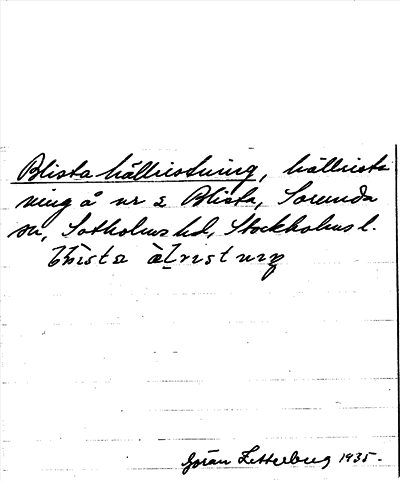 Blista hällristning, hällrist-
ning å nr 2 Blista, Sorunda
sn, Sotholms hd, Stockholms l.
Göran Zetterberg 1935.